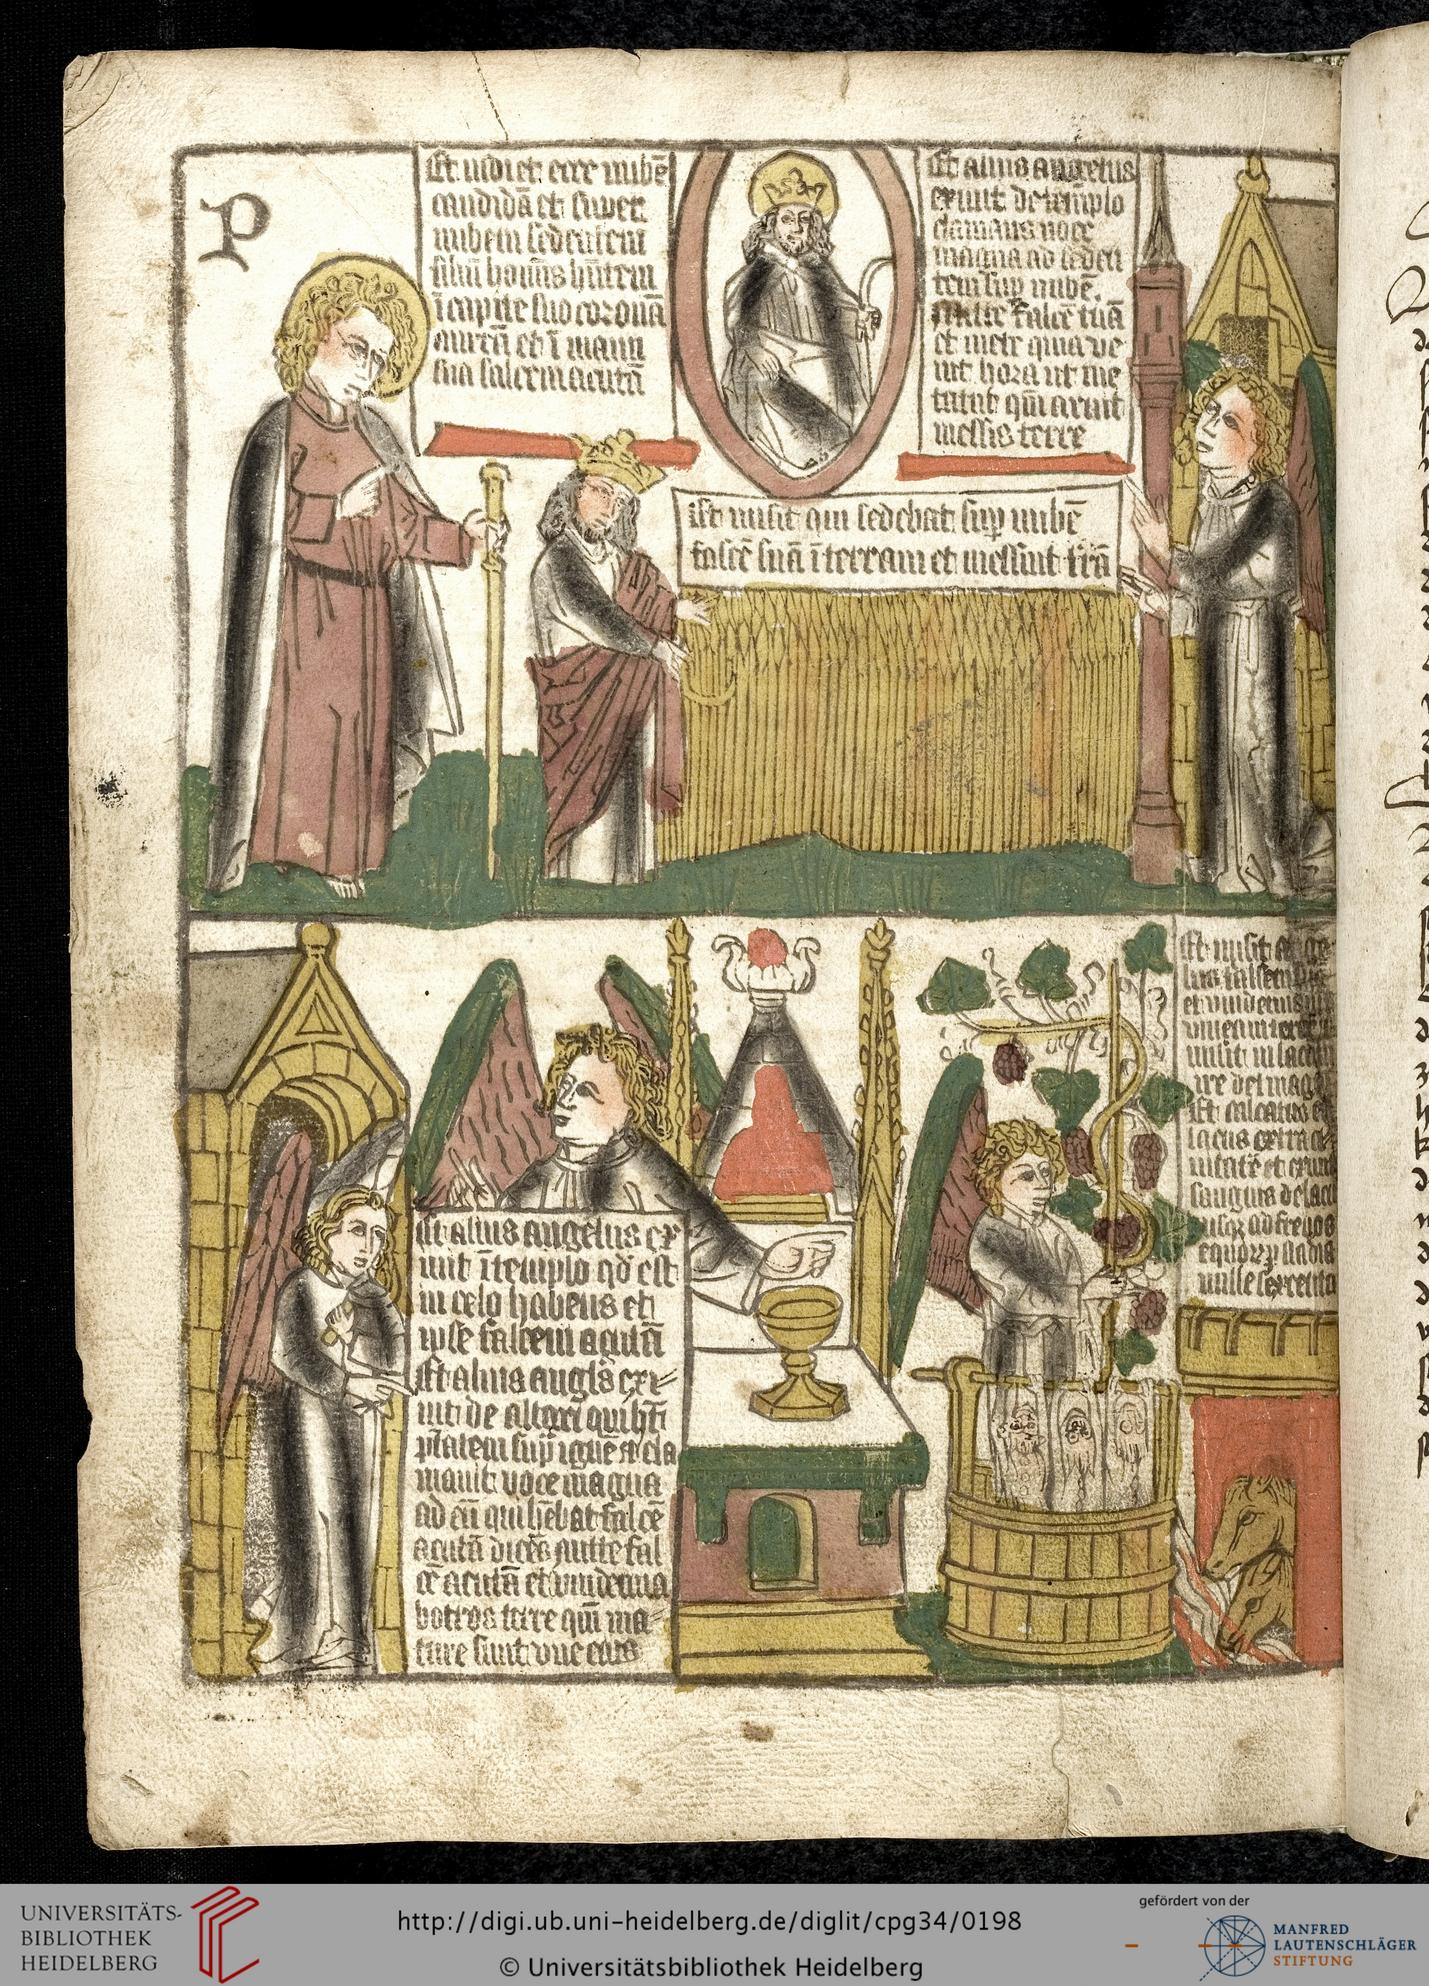 P
Et uidi et ecce nubē
candidā et super
nubem sedentem
filiū hoīnis hn̄tem
ī capite suo coronā
aureā et ī manu
sua falcem acutā
Et alius angelus
exiuit de templo
clamans uoce
magna ad seden
tem sup nubē.
Mitte falcē tuā
et mete quia ve
nit hora ut me
tatur qm̄ aruit
messis terre
Et misit qui sedebat sup nubē
falcē suā ī terram et messuit t̄rā
Et alius angelus ex
iuit ī templo qd̄ est
in celo habens et
ipse falcem acutā
Et alius angl̄s exi⸗
uit de altari qui hēt
p̄tatem sup ignē et cla
mauit voce magna
ad eū qui hēbat falcē
acutā dicēs mitte fal
cē acutā et vindemia
botros terre qm̄ ma⸗
ture sunt vue eius
Et misit
et vindemi
vineam
misit in lacum
ire dei mag
Et calcatus
lacus extra ci⸗
uitatē et exiuit
sanguis de lacu
usq ad frenos
equorꝝ stadia
mille sexcenta
UNIVERSITÄTS-
BIBLIOTHEK
HEIDELBERG
http://digi.ub.uni-heidelberg.de/diglit/cpg34/0198
© Universitätsbibliothek Heidelberg
gefördert von der
MANFRED
LAUTENSCHLÄGER
STIFTUNG